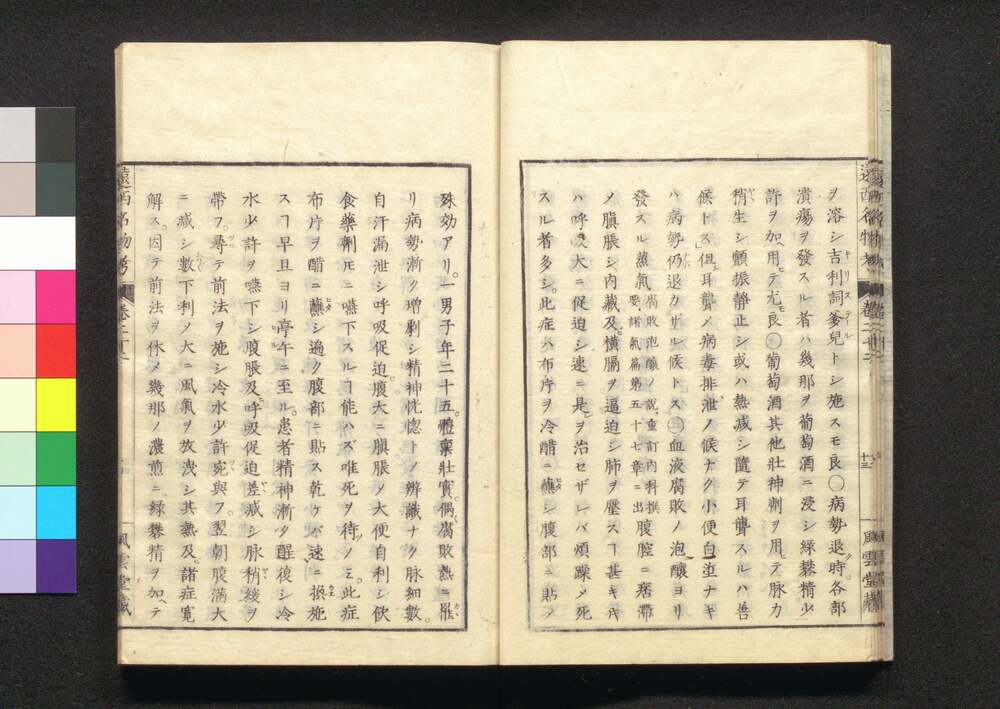 ヲ溶シ吉利詞爹兒トシ施スモ良〇病勢退ク時各部
キリステイル
潰瘍ヲ發スル者ハ幾那ヲ葡萄酒ニ浸シ緑礬精少
許ヲ加ヘ用テ尤良〇葡萄酒其他壯神劑ヲ用テ脉力
稍生シ顫振静止シ或ハ熱減シ隨テ耳聾スルハ善
候トス但耳聾メ病毒排泄ノ候ナク小便白渣ナキ
ハ病勢仍退カザル候トス㊂血液腐敗ノ泡釀ヨリ
發スル蒸氣腐敗泡釀ノ説重訂内科撰要諸熱篇第五十七章ニ出腹腔ニ痞滯
メ䐜脹シ内臓及横膈ヲ逼迫シ肺ヲ壓スヿ甚キ
ハ呼吸大ニ促迫シ速ニ是ヲ治セザレバ煩躁メ死
スル者多シ此症ハ布片ヲ冷醋ニ蘸シ腹部ニ貼メ
殊効アリ一男子年二十五體稟壯實偶腐敗熱ニ罹
リ病勢漸ク増劇シ精神恍惚トメ辨識ナク脉細數
自汗漏泄シ呼吸促迫腹大ニ䐜脹メ大便自利シ飲
食藥劑モニ嚥下スルヿ能ハズ唯死ヲ待ツノミ此症
布片ヲ醋ニ蘸シ遍ク腹部ニ貼ス乾ケバ速ニ換施
スヿ早旦ヨリ亭午ニ至ル患者精神漸ク醒復シ冷
水少許ヲ嚥下シ腹脹及呼吸促迫差減シ脉稍緩ヲ
帶フ尋テ前法ヲ施シ冷水少許宛與フ翌朝腹滿大
ニ減シ數下利メ大ニ風氣ヲ放洩シ其熱及諸症寛
解ス因テ前法ヲ休メ幾那ノ濃煎ニ緑礬精ヲ加ヘテ
遠西名物考
卷二十二
風雲堂藏